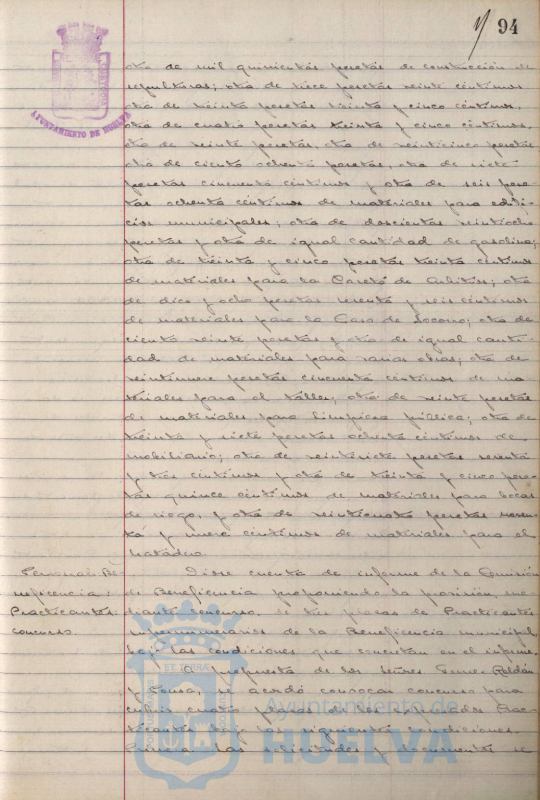 94
AYUNTAMIENTO DE HUELVA
otra de mil quinientas pesetas de construcción de
sepulturas; otra de trece pesetas veinte céntimos
otra de treinta pesetas treinta y cinco céntimos,
otra de cuatro pesetas treinta y cinco céntimos,
otra de veinte pesetas, otra de veinticinco pesetas
otra de ciento ochenta pesetas, otra de siete
pesetas cincuenta céntimos y otra de seis pese-
tas ochenta céntimos de materiales para edifi-
cios municipales; otra de doscientas veintiocho
pesetas y otra de igual cantidad de gasolina;
otra de treinta y cinco pesetas treinta céntimos
de materiales para la Caseta de Arbitrios; otra
de diez y ocho pesetas sesenta y seis céntimos
de materiales para la Casa de Socorro; otra de
ciento veinte pesetas y otra de igual canti-
dad de materiales para varias obras; otra de
veintinueve pesetas cincuenta céntimos de ma-
teriales para el taller; otra de veinte pesetas
de materiales para limpieza pública; otra de
treinta y siete pesetas ochenta céntimos de
mobiliario; otra de veintisiete pesetas
y tres céntimos y otra de treinta y cinco pese-
tas quince céntimos de materiales para bocas
de riego, y otra de veinticuatro pesetas noven-
ta y nueve céntimos de materiales para el
matadero.
Personal Be-
neficencia:
Practicantes:
concurso.
Dióse cuenta de informe de la Comisión
de Beneficencia proponiendo la provisión, me-
diante concurso, de tres plazas de Practicantes
supernumerarios de la Beneficencia municipal,
bajo las condiciones que constan en el informe.
A propuesta de los Señores Roldán
y se acordó convocar concurso para
cubrir cuatro plazas de los expresados Prac-
ticantes bajo las siguientes condiciones.
las solicitudes y documentos se
Ayuntamiento de
HUELVA